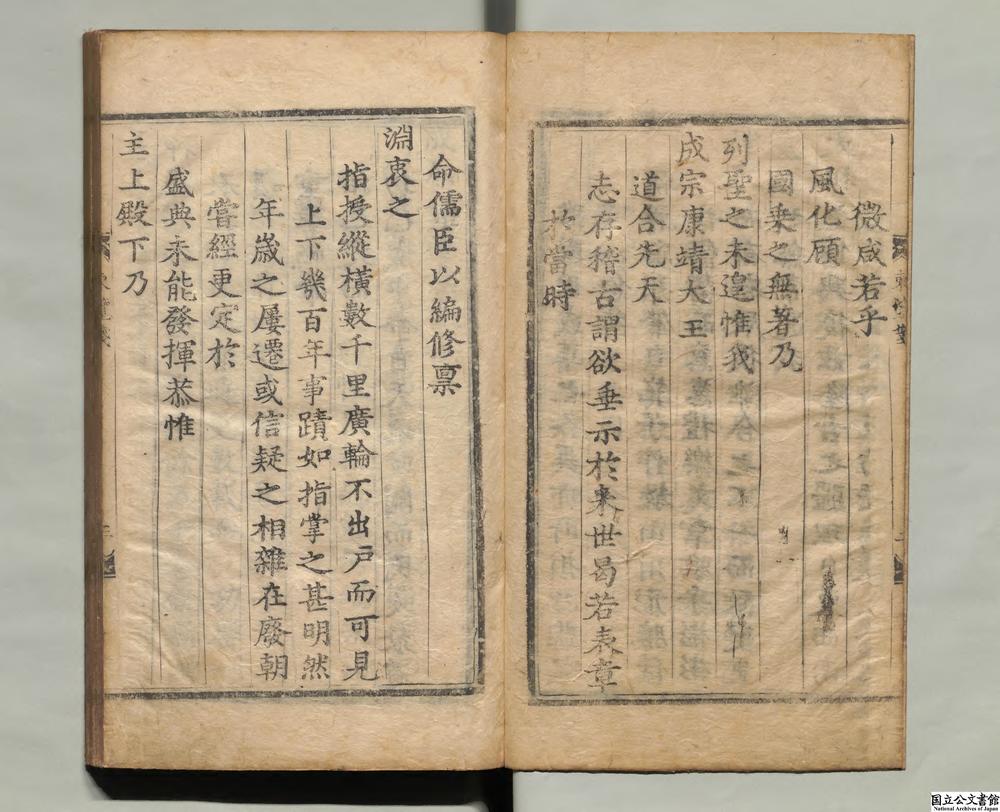 微咸若乎
風化顧
國乗之無著乃
列聖之未遑惟我
成宗康靖大王
道合先天
志存稽古謂欲垂示於来世曷若表章
於當時
命儒臣以編修禀
淵衷之
指授縱橫數千里廣輪不出戸而可見
上下幾百年事蹟如指掌之甚明然
年歳之屢遷或信疑之相雜在廢朝
嘗經更定於
盛典未能發揮恭惟
主上殿下乃
国立公文書館
National Archives of Japan